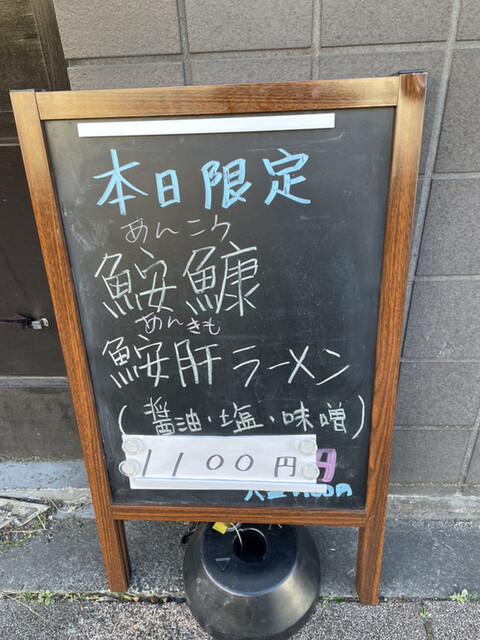 本日限定
あんこう
鮟鱇
あんきも
鮟肝ラーメン
(醤油・塩・味噌)
1100円